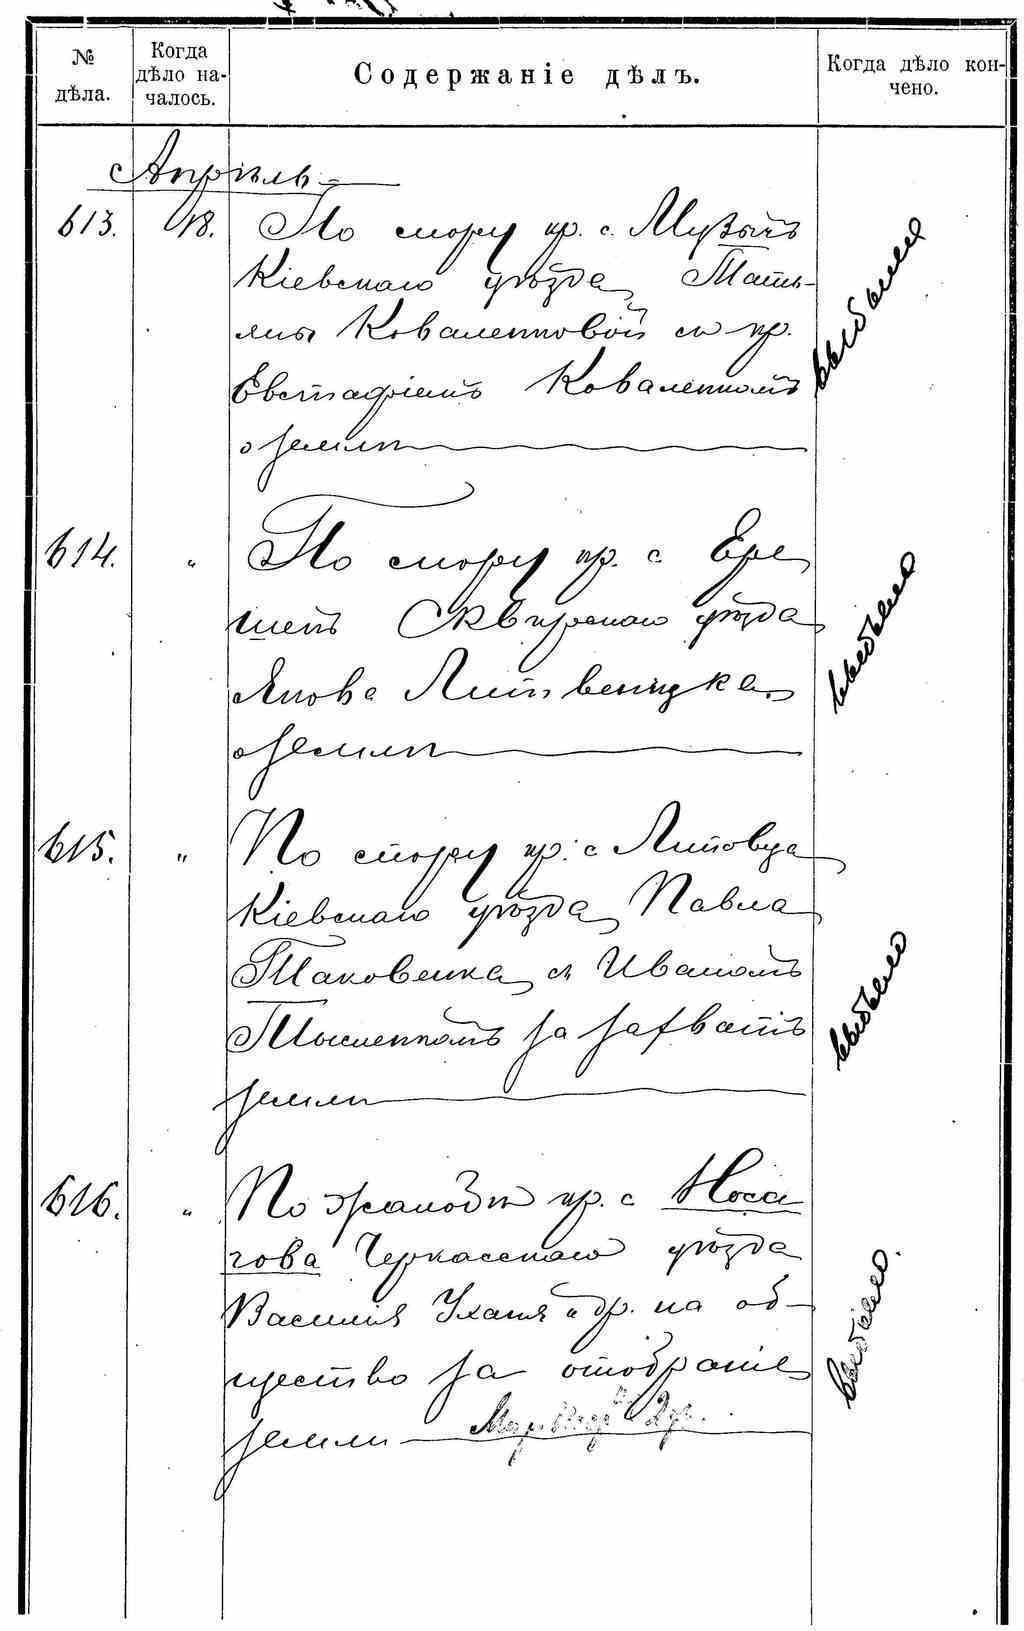 № дѣла.
Когда дѣло на-
чалось.
Содержаніе дѣлъ.
Когда дѣло кон-
чено.
Апрѣль
613. 18. По спору кр. с. Музычъ
Кіевскаго уѣзда Тать-
яны Коваленковой съ кр.
Евстафіемъ Коваленкомъ
о землѣ
выбыло
614. " По спору кр. с. Ере-
шекъ Сквирскаго уѣзда
Якова Литвенчука
о землѣ
выбыло
615. " По спору кр. с Литовца
Кіевскаго уѣзда Павла
Таковенка съ Иваномъ
Тысленкомъ за захватъ
земли
выбыло
616. " По жалобѣ кр. с Носа-
чова Черкасскаго уѣзда
Василія Уханя и др. на об-
щество за отобраніе
земли
выбыло.